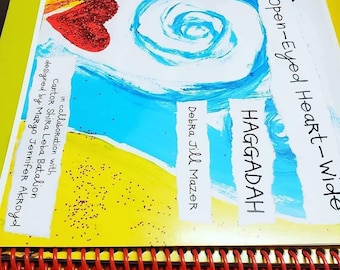 Open-Eyed Heart-Wide
HAGGADAH
Debra Jill Mazer
in collaboration with
Cantor Shira Leba Batalion
designed by Margo Jennifer Akroyd